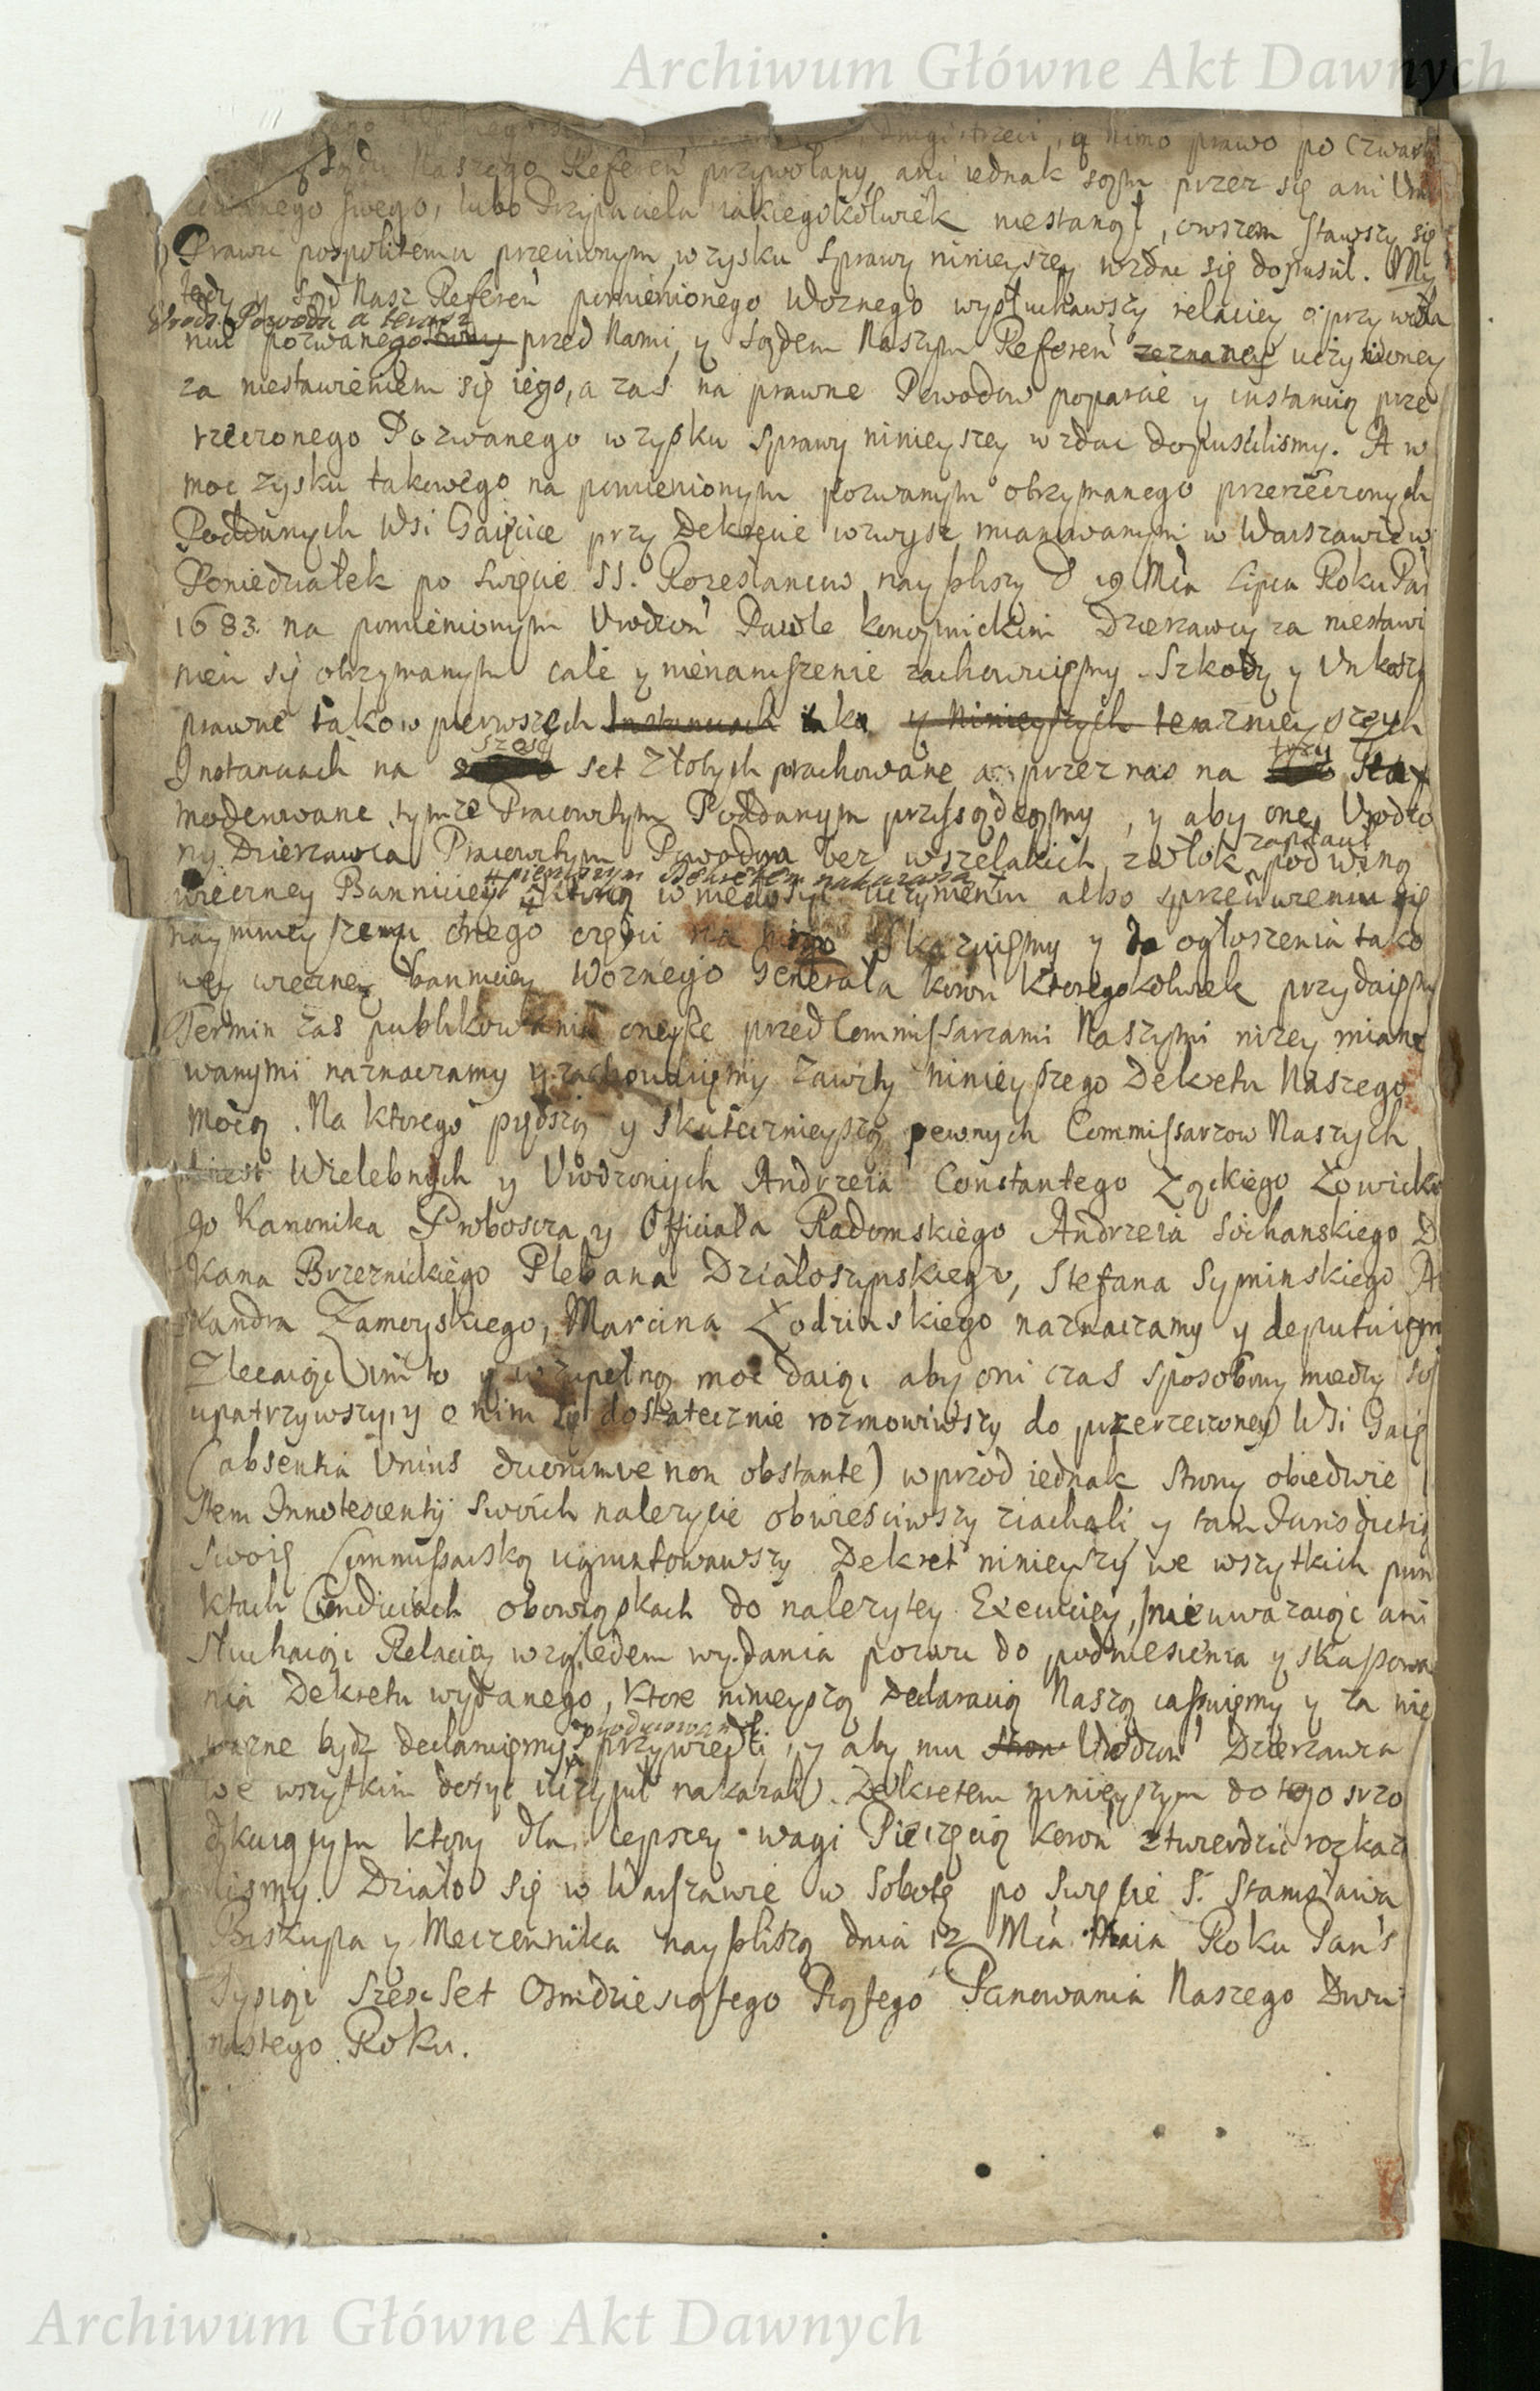 Archiwum Główne Akt Dawnych
Drugi trzeci, y mimo prawo po czwarte
Sądu Naszego Referen przywołany, ani iednak sąm przez się ani Um
swego, lubo Przyiaciela iakiegokolwiek niestanął, owszem stawszy się
Prawu pospolitemu przeciwnym, w zysku sprawy ninieyszey wzdac się dopuścił. My
tedy y Sąd Nasz Referen pomienionego Woznego wysłuchawszy relaciey o przywoła
Powoda a teraz
niu pozwanego przed Nami y Sądem Naszym Referen zeznaney uczynioney
za niestawieniem się iego, a zas na prawne Powodow poparcie y instancią prze
rzeczonego Pozwanego w zysku sprawy ninieyszey wzdac dopuscilismy. A w
moc zysku takowego na pomienionym pozwanym otrzymanego przerzeczonych
Poddanych Wsi Gaięcice przy Dekrecie wzwysz mianowanym w Warszawie w
Poniedziałek po Swięcie SS. Rozesłancow nayblizszy D 19 Mca Lipca Roku Pan
1683 na pomienionym Urodzon Pawle Konopnickim Dzierzawcy za niestawi
niem się otrzymanym cale y nienaruszenie zachowuięmy. Szkody y Unkoszty
prawne tako w pierwszych Instanciach iako y ninieyszych terazniey szych
sześć trzy
Instanciach na set Złotych rachowane a przez nas na sta
moderowane tymze Pracowitym Poddanym przysądzamy, y aby one Urodzo
zapłacił
ny Dzierzawca Pracowitym Powodom bez wszelakich zwłok pod winą
pierwszym Dekretem nakazaną
wieczney Banniciey ktorą w niedosyc uczynieniu albo sprzeciwieniu się
naymnieyszemu tnego części na nim skazuięmy y do ogłoszenia tako
wey wieczney banniciey Woznego Generała koron ktoregokolwiek przydaięmy
Termin zas publikowania oneyze przed Commissarzami Naszymi nizey miano
wanymi naznaczamy y zachowuięmy zawity ninieyszego Dekretu Naszego
mocą. Na ktorego prędszą y skutecznieyszą pewnych Commissarzow Naszych
Wielebnych y Urodzonych Andrzeia Constantego Ząckiego Łowicko
go Kanonika Proboscza y Officiała Radomskiego Andrzeia Sochanskiego D
kana Brzeznickiego Plebana Działoszynskiego, Stefana Syminskiego A
xandra Zamoyskiego, Marcina Łodzinskiego naznaczamy y deputuięmy
Zlecaiąc im to y w zupełną moc daiąc aby oni czas sposobny między sob
upatrzywszy, y o nim się dostatecznie rozmowiwszy do przerzeczoney Wsi Gaię
(absentia Unius duorumve non obstante) wprzod iednak strony obiedwie
stem Innotescentij swoich nalezycie obwieściwszy ziachali y tam Jurisdictią
swoię Commissarską ugruntowawszy Dekret ninieyszy we wszytkich pun
ktach Condiciach obowiąskach do nalezytey Execuciey, nieuwazaiąc ani
słuchaiąc Relacią względem wydania pozwu do podniesienia y skassowa
nia Dekretu wydanego, ktore ninieyszą Declaracią Naszą cassuięmy y za nie
wazne bydz declaruięmy przywiedli, y aby mu stron Urodzon Dzierzawca
we wszystkim dosyc uczynił nakazali. Dekretem ninieyszym do tego srzo
dkuiącym ktory dla lepszey wagi Pieczęcią Koron ztwierdzic rozkaza
lismy. Działo się w Warszawie w Sobotę po Swięcie S. Stanisława
Biskupa y Męczennika nayblizszą dnia 12 Mca Maia Roku Pans
Tysiąc szesc set Osmdziesiątego Piątego Panowania Naszego Dwu
nastego Roku.
Archiwum Główne Akt Dawnych